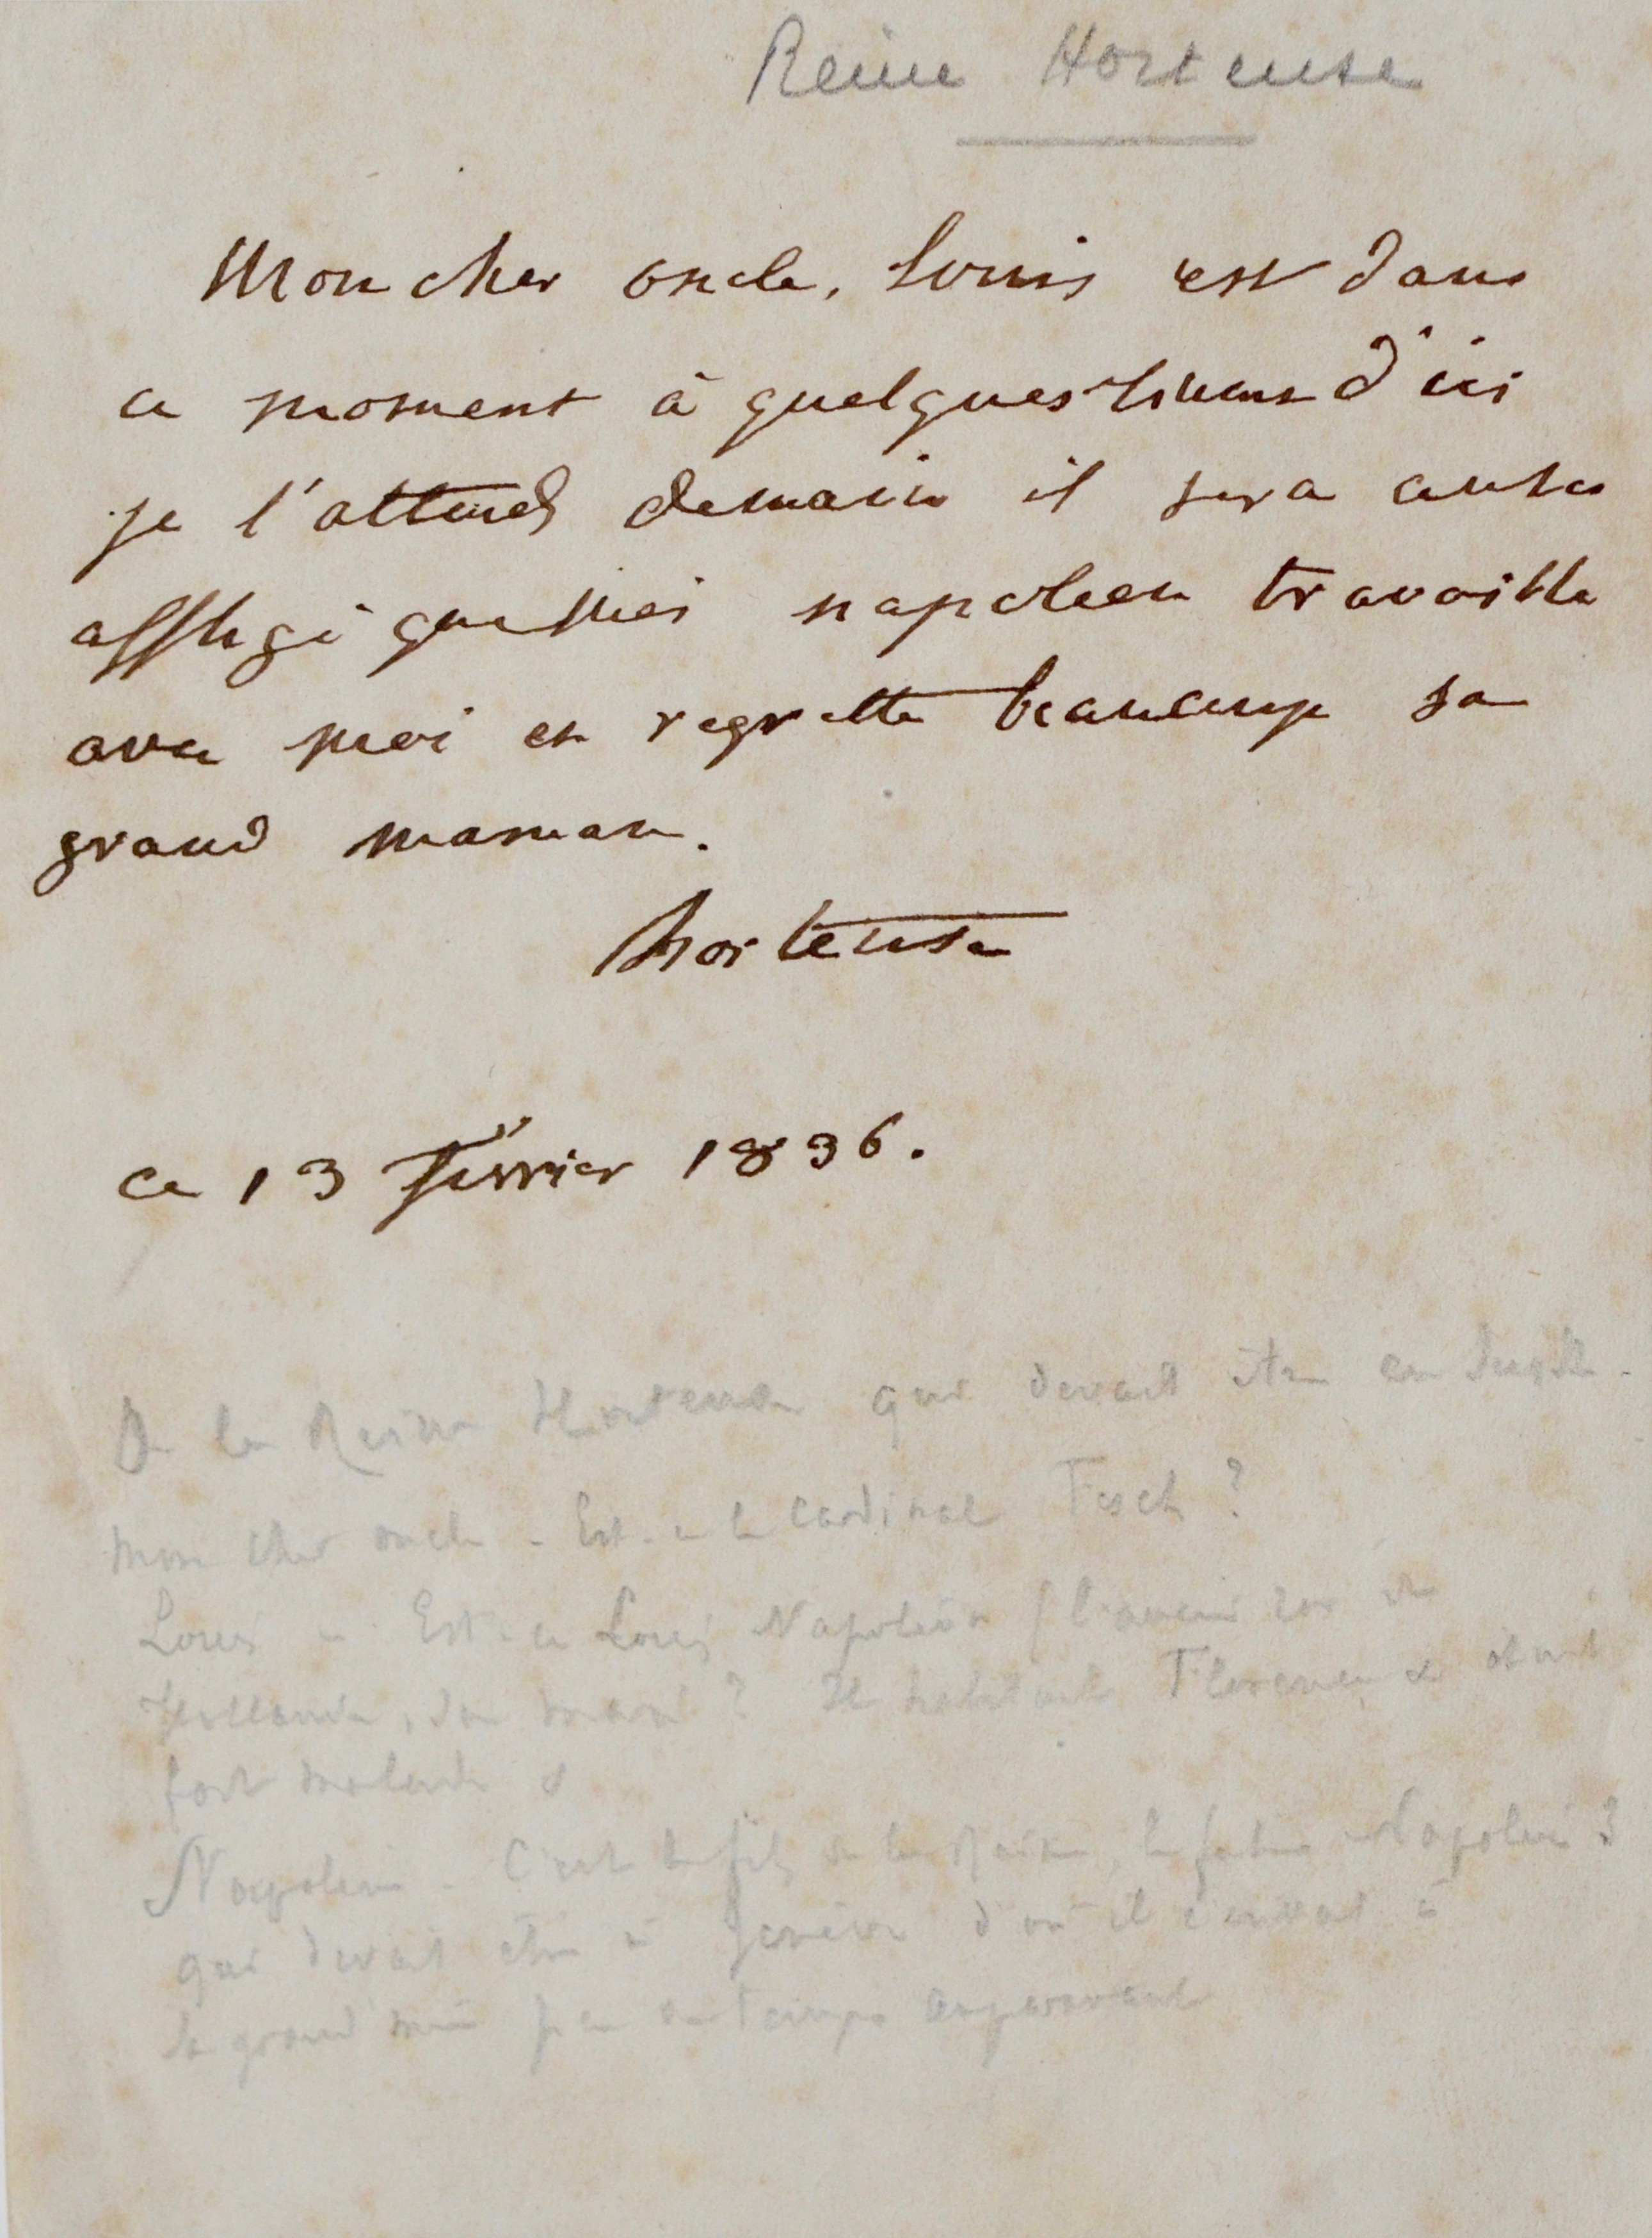 Reine Hortense
Mon cher oncle, Louis est dans
ce moment à quelques lieues d'ici
je l'attends demain il sera aussi
affligé que moi napoleon travaille
avec moi et regrette beaucoup sa
grand maman.
hortense
ce 13 février 1836.
De la Reine Hortense qui devait être en
Mon cher oncle - Est-ce le Cardinal Fesch ?
Louis - Est-ce Louis Napoléon (l'ancien roi de
Hollande, son mari ? Il habitait Florence & était
fort malade
Napoléon - C'est le fils de la Reine, le futur Napoléon 3
qui devait être à Genève d'où il écrivait à
sa grand'mère peu de temps auparavant